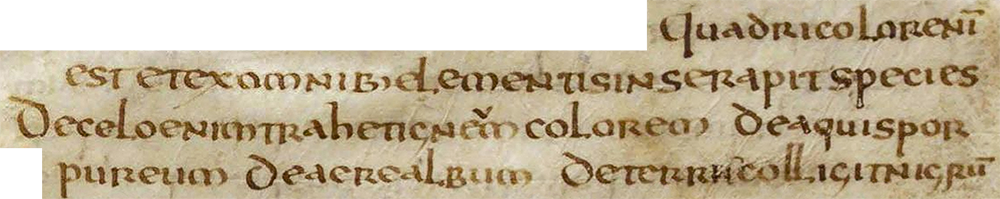 Quadricolor enī
est et ex omnib; elementis in se rapit species
De celo enim trahet igneum colorem de aquis por
pureum de aere album de terris colligit nigrū